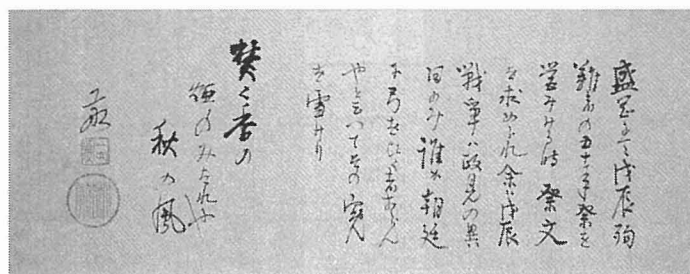 盛岡にて戊辰殉
難者の五十年祭を
営みける時祭文
を求められ余は戊辰
戦争ハ政見の異
同のみ誰か朝廷
に弓をひく者あらん
やといつてその冤
を雪けり
焚く香の
煙のみたれや
秋の風
敬